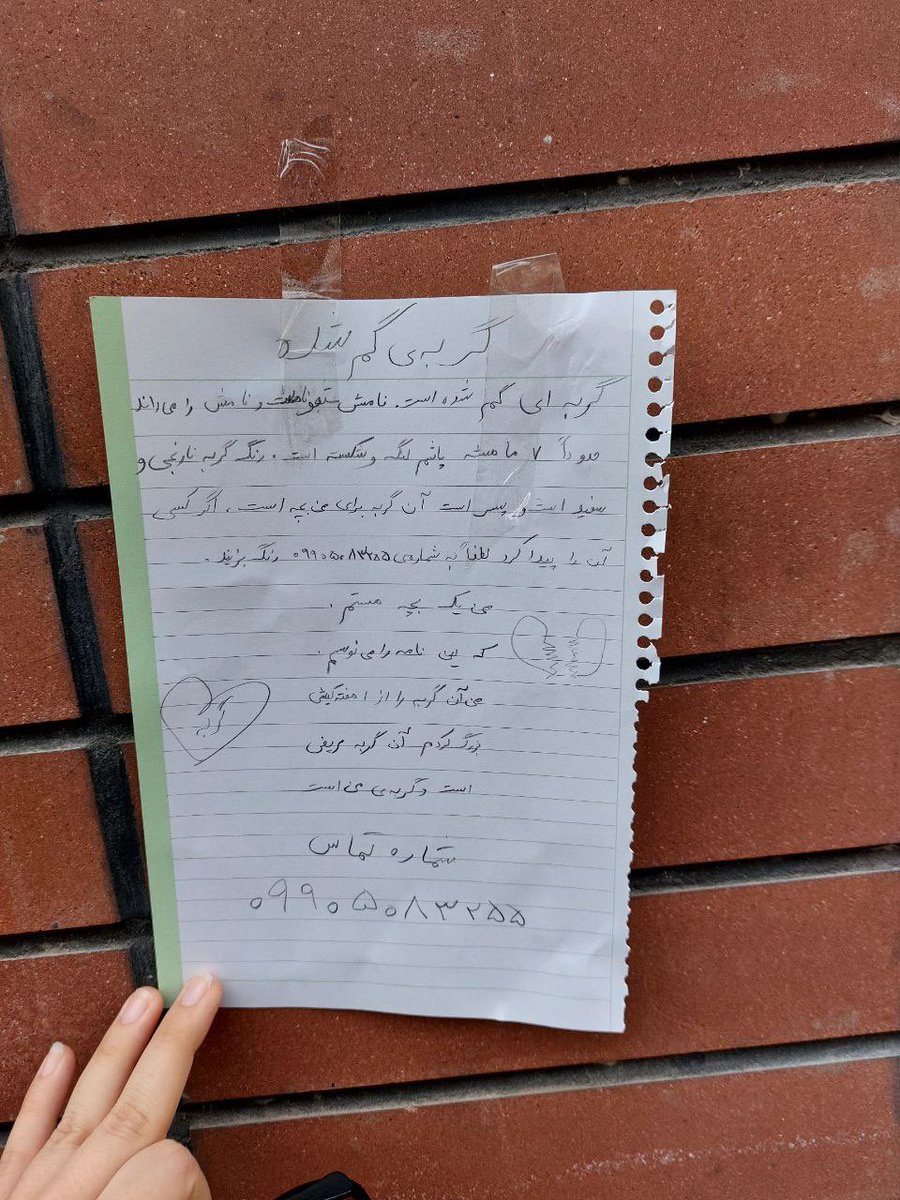 گربه‌ی گم شده
گربه ای گم شده است. نامش و نامش را می‌داند
حدوداً ۷ ماهشه پاشم لنگه و شکسته است. رنگ گربه نارنجی و
سفید است و پسر است آن گربه برای من بچه است، اگر کسی
آن را پیدا کرد لطفاً به شماره‌ی ۰۹۹۰۵۰۸۳۲۵۵ زنگ بزنید.
من یک بچه هستم.
که این نامه را می‌نویسم.
من آن گربه را از ۱ هفتگیش
بزرگ کردم آن گربه مریض
گربه
است و گربه‌ی من است
شماره تماس
۰۹۹۰۵۰۸۳۲۵۵